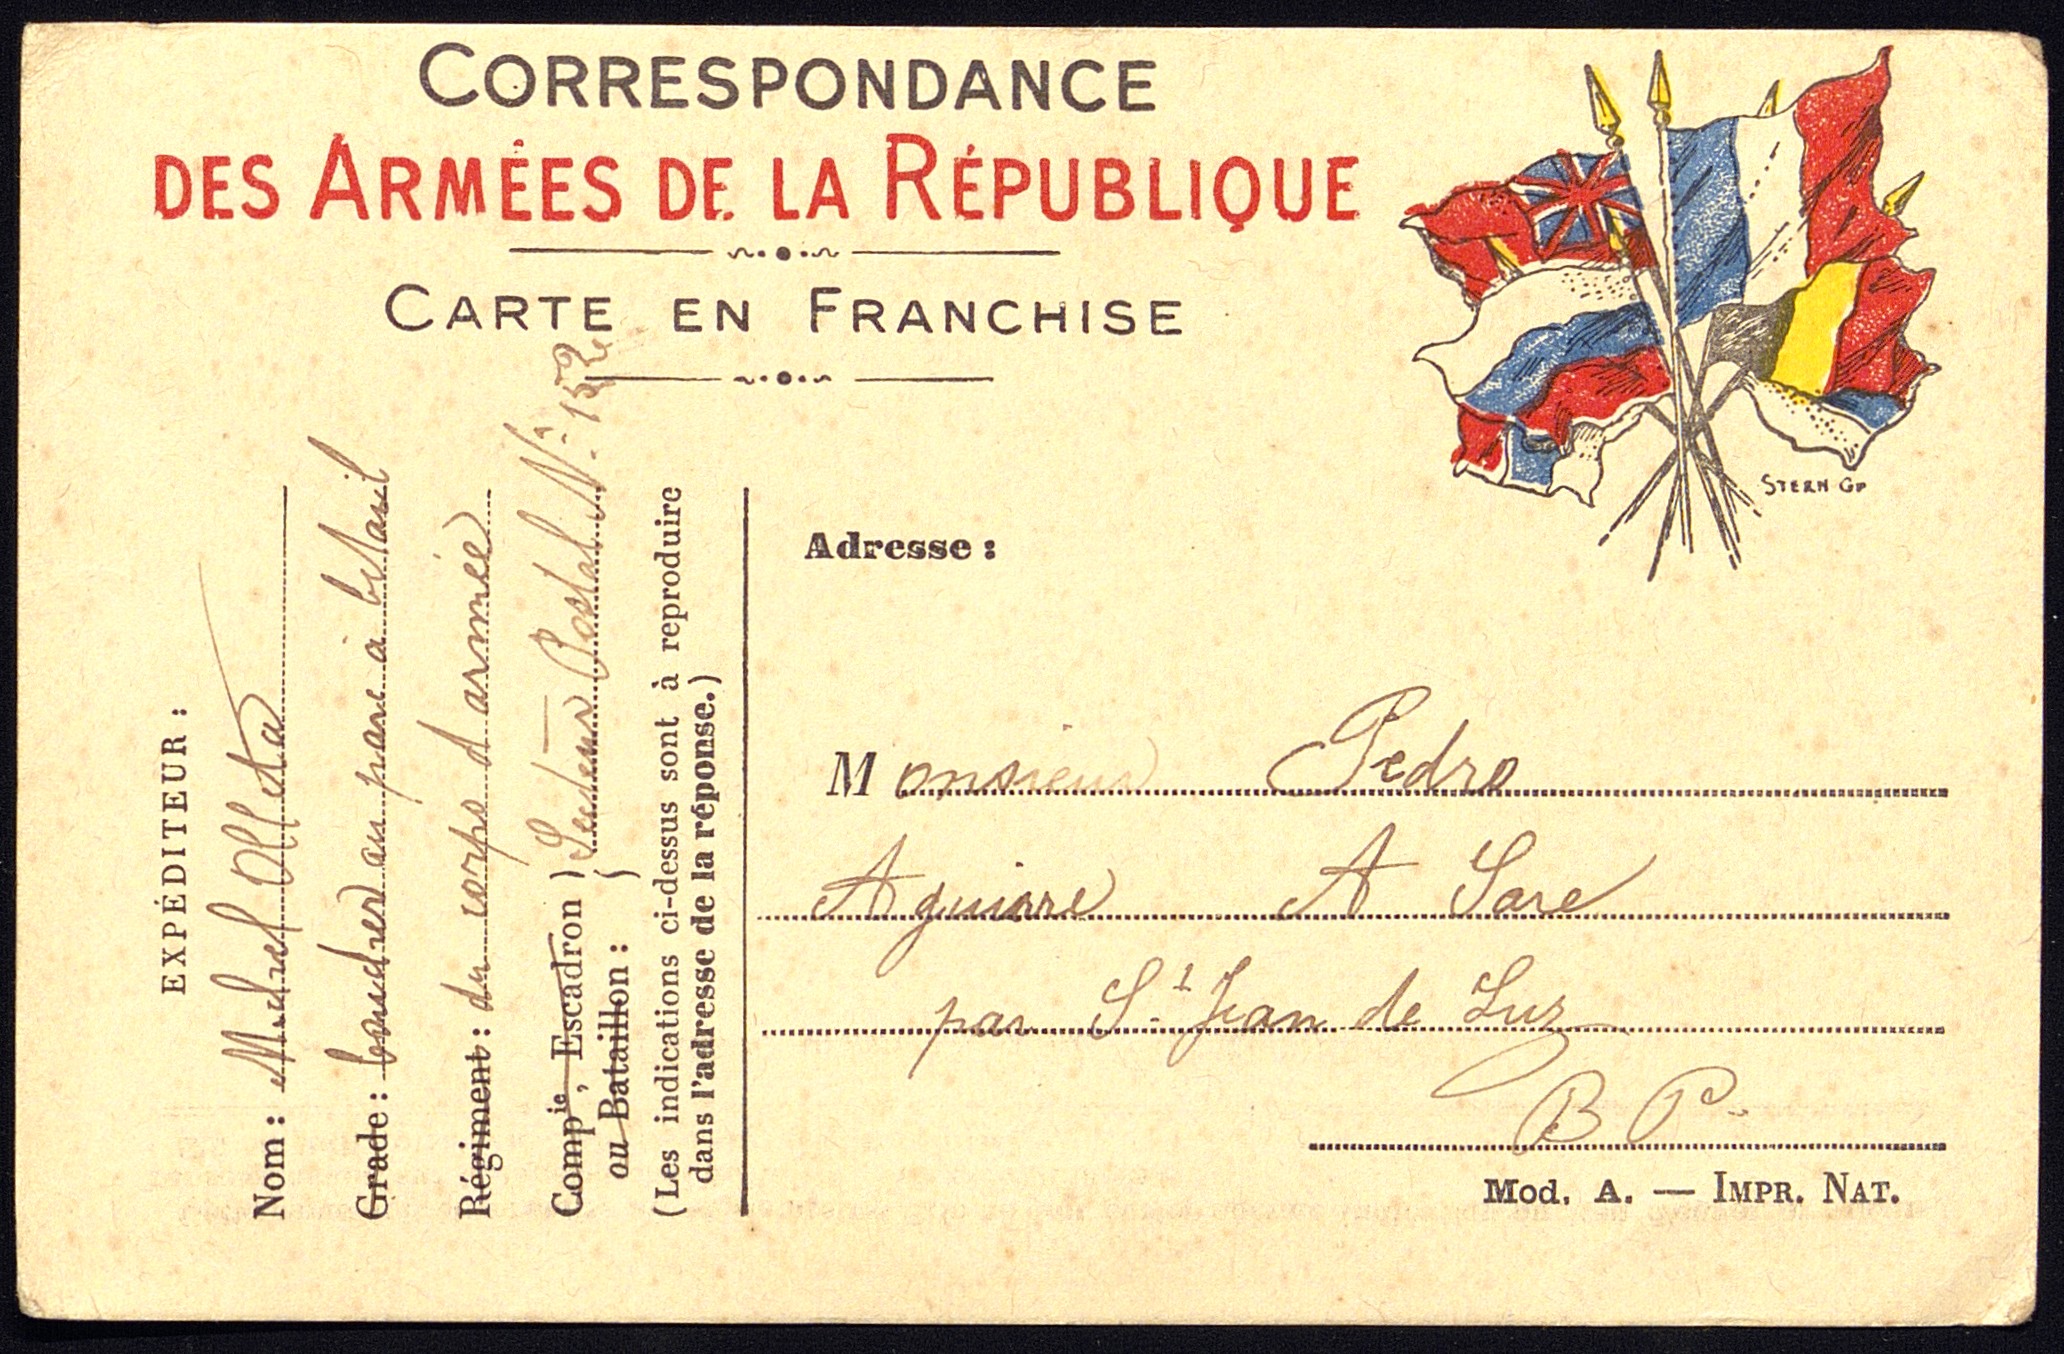 CORRESPONDANCE
DES ARMÉES DE LA RÉPUBLIQUE
CARTE EN FRANCHISE
STERN Gr
EXPÉDITEUR :
Nom : Michel Olleta
Grade : boucher au parc à bétail
Régiment : du corps d'armée
Compie, Escadron } Secteur Postal No 152
ou Bataillon :
(Les indications ci-dessus sont à reproduire
dans l'adresse de la réponse.)
Adresse :
Monsieur Pedro
Aguirre A Sare
par St Jean de Luz
B P.
Mod. A. — IMPR. NAT.